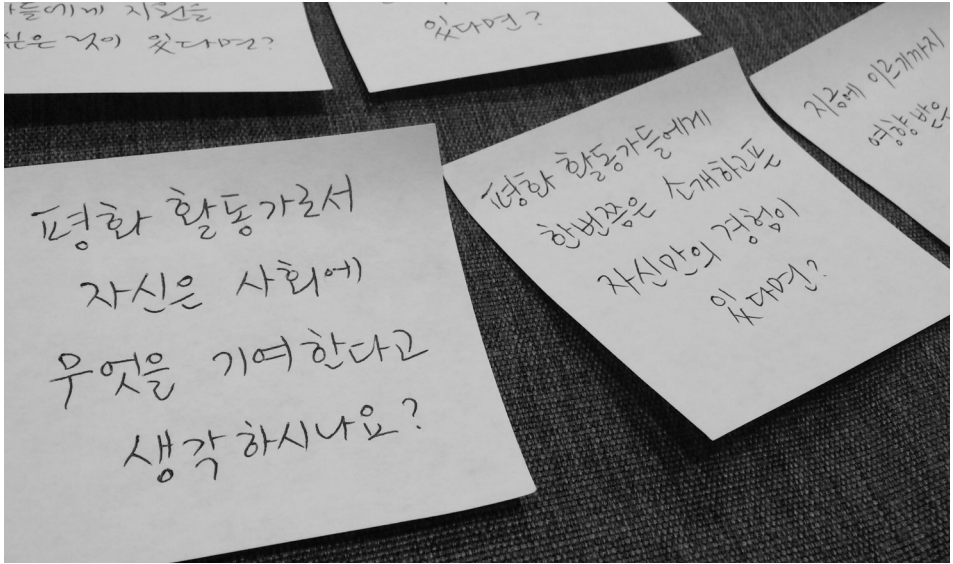 들에게 지원을
싶은 것이 있다면?
있다면?
평화 활동가로서
자신은 사회에
무엇을 기여한다고
생각하시나요?
평화 활동가들에게
한번쯤은 소개하고픈
자신만의 경험이
있다면?
지금에 이르기까지
영향받은